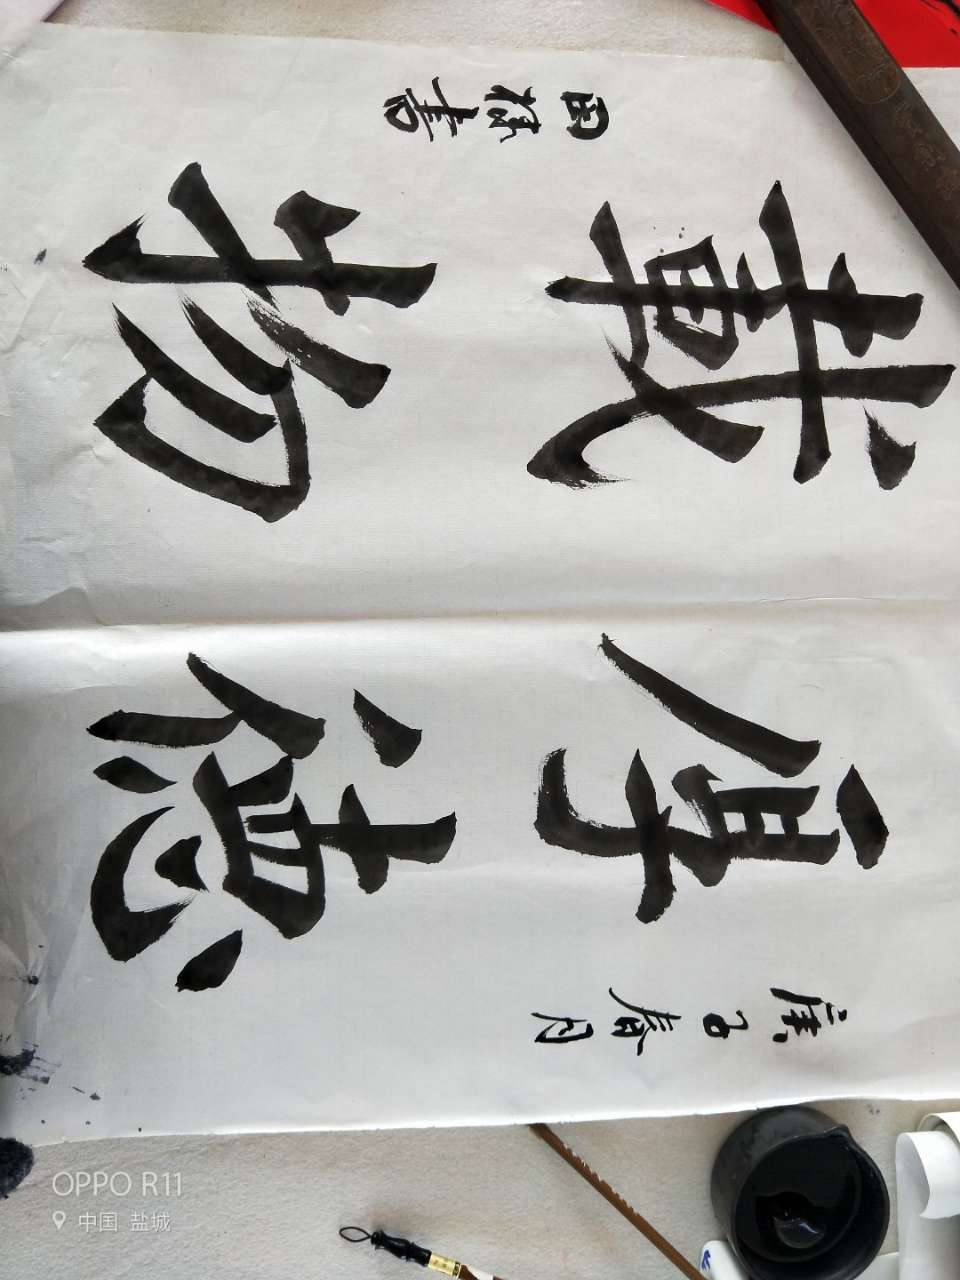 庚子春月
厚德
載物
田書
OPPO R11
中国 盐城